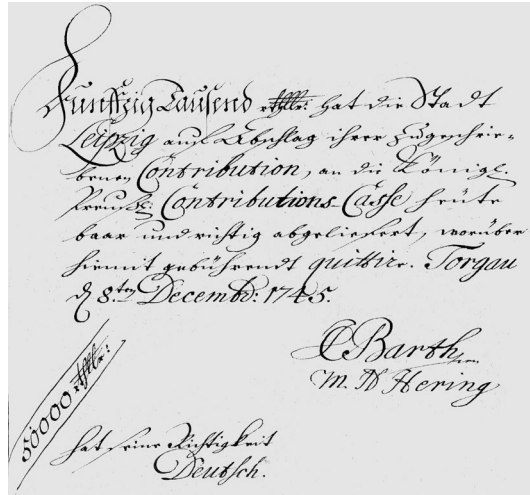 Funffzig Tausend rthlr: hat die Stadt
Leipzig auf Abschlag ihrer zugeschrie-
benen Contribution, an die Königl.
Preuß: Contributions Casse heute
baar und richtig abgeliefert, worüber
hiemit gebührendt quittire. Torgau
d 8.ten Decembr: 1745.
C Barth
M. N Hering
50000 rthlr:
hat seine Richtigkeit
Deutsch.